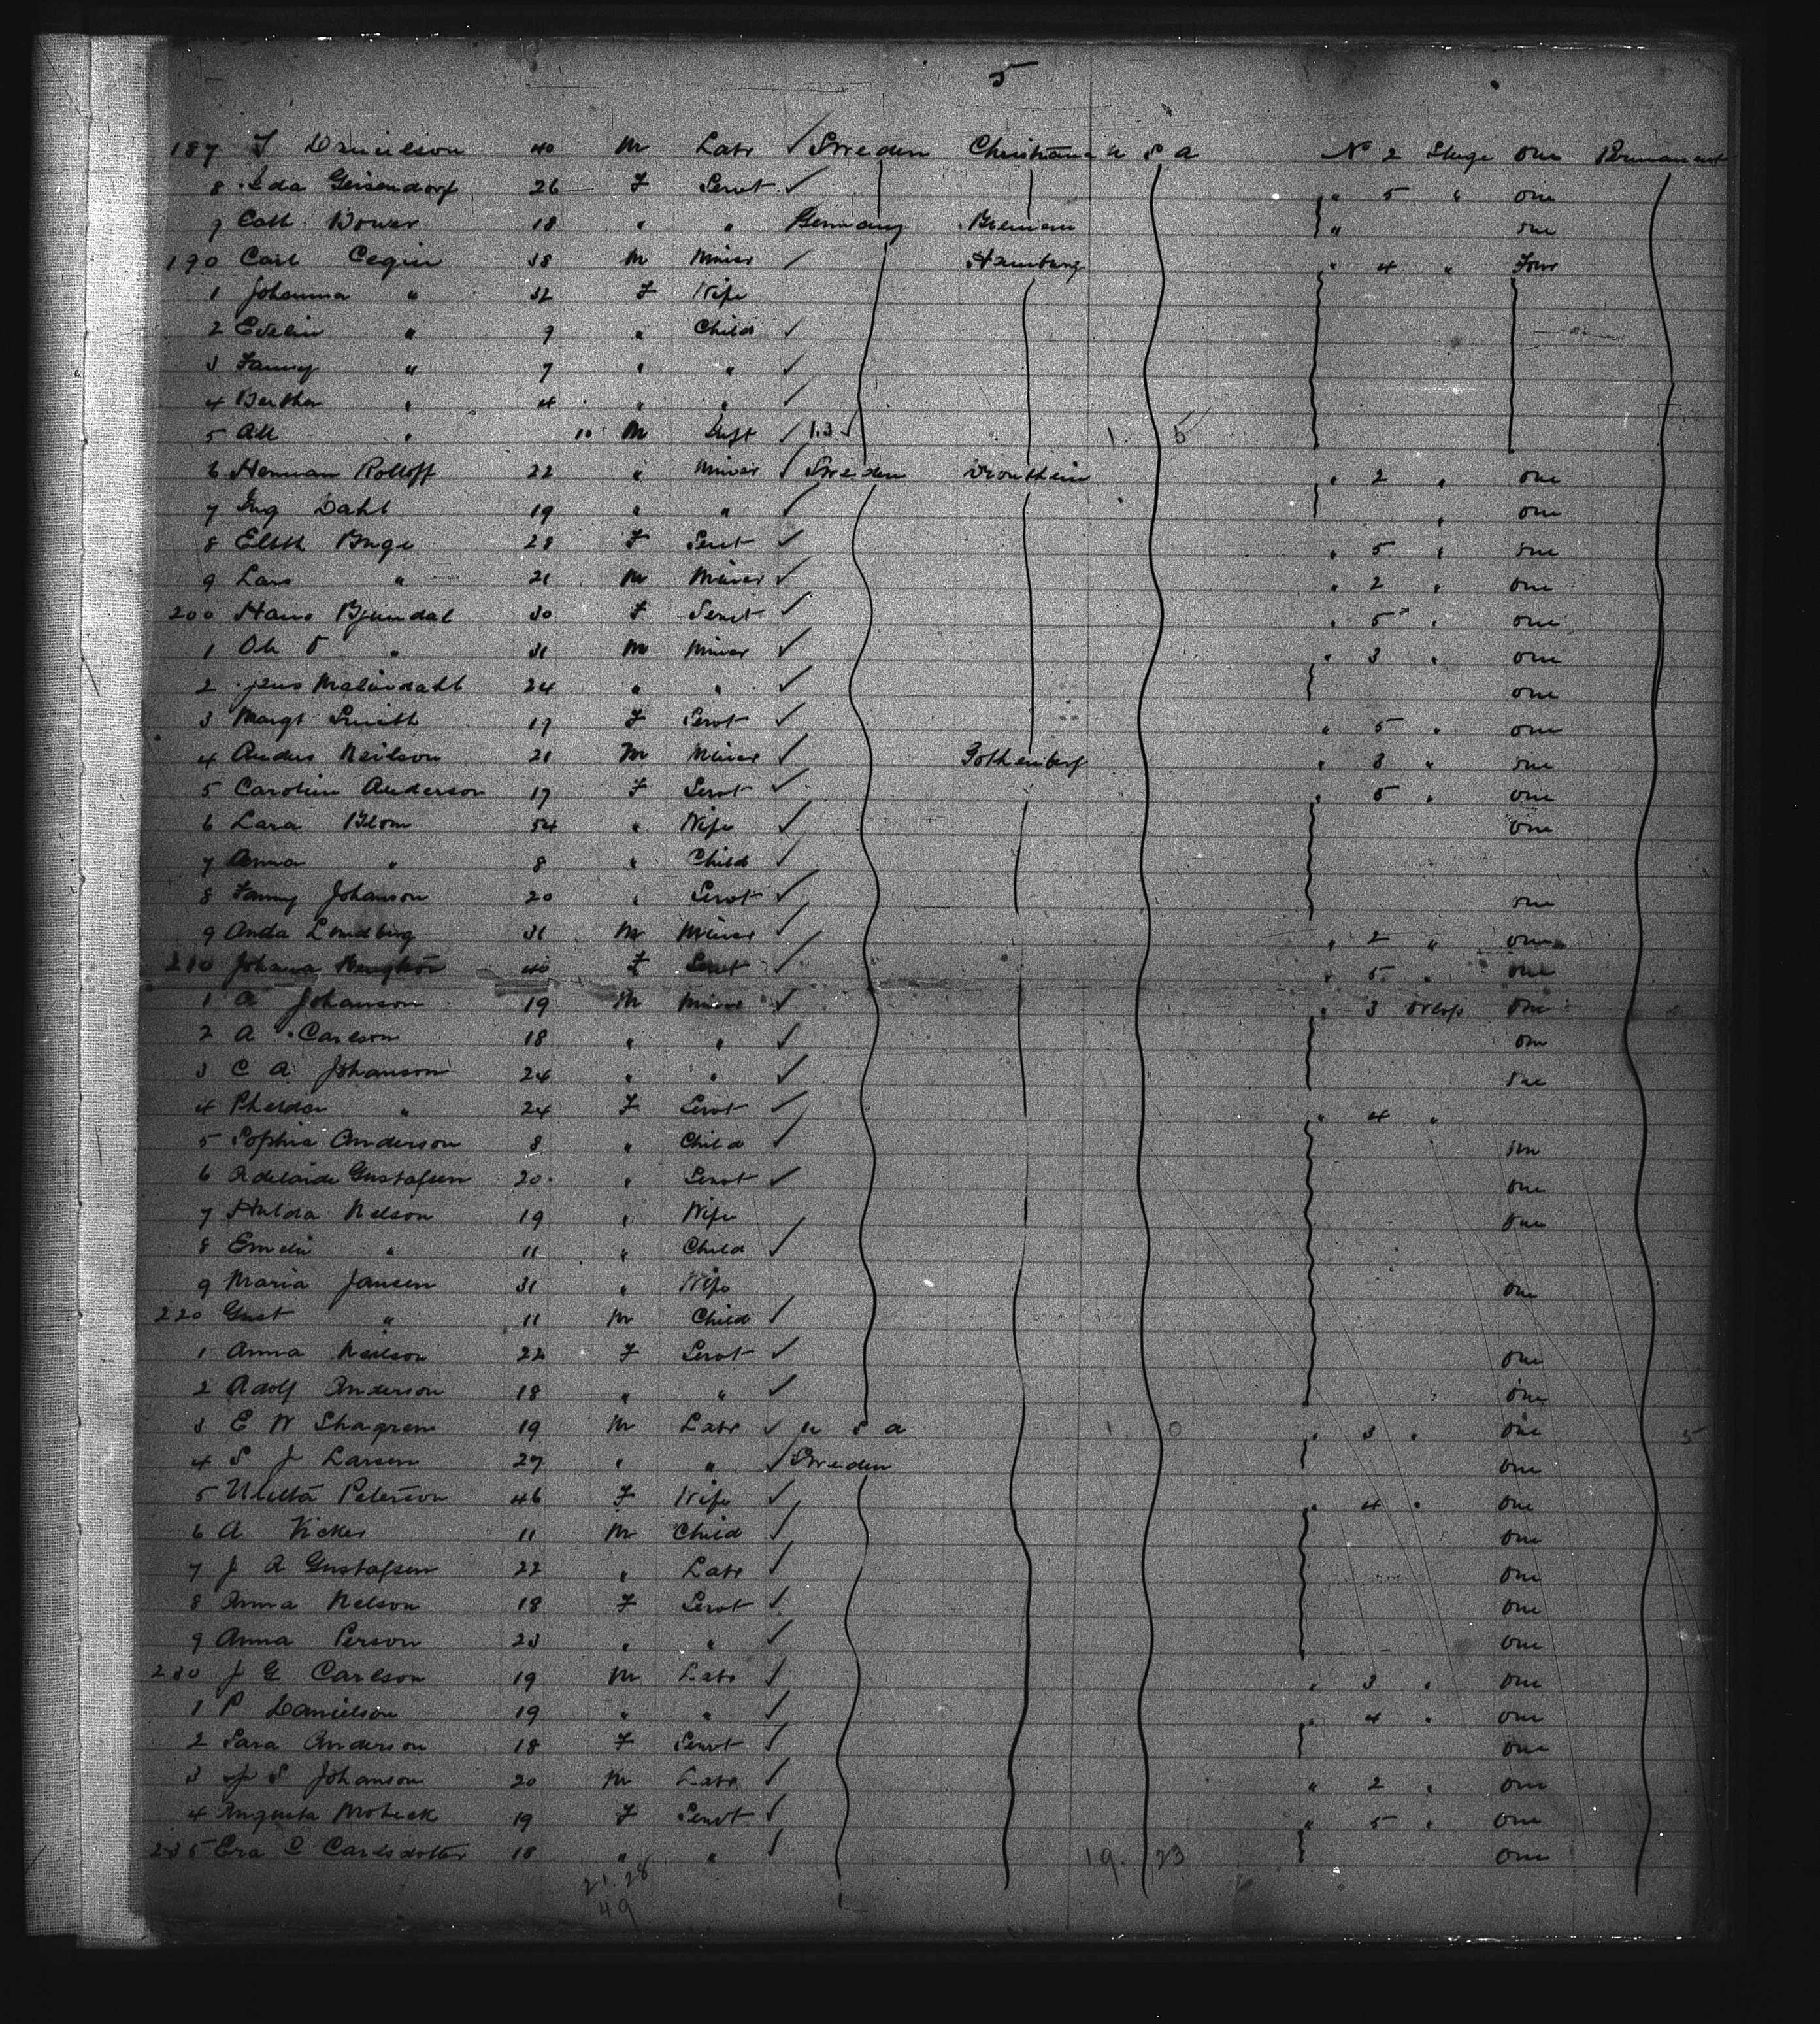 5
187 J Danielson 40 M Labr ✓ Sweden Christiana U S A No 2 Stege One Permanent
8 Ida Geisendorf 26 F Servt ✓ " 5 " one
9 Cath Bower 18 " " Germany Bremen " one
190 Carl Cegin 38 M Miner ✓ Hamburg " 4 " Four
1 Johanna " 32 F Wife
2 Evelin " 9 " Child ✓
3 Fanny " 7 " " ✓
4 Bertha " 4 " " ✓
5 " 10 M Inft ✓ 1.3 1. 5
6 Herman Rolloff 22 " Miner ✓ Sweden Drontheim " 2 " one
7 Ing Dahl 19 " " ✓ " one
8 Elith Buge 28 F Servt ✓ " 5 " one
9 Lars " 21 M Miner ✓ " 2 " one
200 Hans Bjundal 30 F Servt ✓ " 5 " one
1 Ole " 31 M Miner ✓ " 3 " one
2 24 " " ✓ one
3 Margt Smith 19 F Servt ✓ " 5 " one
4 Andus Neilson 21 M Miner ✓ Gothenberg " 3 " one
5 Carolin Anderson 17 F Servt ✓ " 5 " one
6 Lara Blom 54 " Wife ✓ one
7 Anna " 8 " Child ✓
8 Fanny Johanson 20 " Servt ✓ one
9 Anda Lundberg 31 M Miner ✓ " 2 " one
210 Johana 40 F Servt ✓ " 5 " one
1 A Johanson 19 M Miner ✓ " 3 Orlop one
2 A Carlson 18 " " ✓ one
3 C A Johanson 24 " " ✓ one
4 " 24 F Servt ✓ " 4 "
5 Sophia Anderson 8 " Child ✓ one
6 Adelaide Gustafsen 20 " Servt ✓ one
7 Hulda Nelson 19 " Wife one
8 Emelie " 11 " Child ✓
9 Maria Jansen 31 " Wife one
220 Gust " 11 M Child ✓
1 Anna Neilson 22 F Servt ✓ one
2 Adolf Anderson 18 " " ✓ one
3 E W Shagren 19 M Labr ✓ U S A 1. 0 " 3 " one 5
4 S J Larsen 27 " " ✓ Sweden one
5 Peterson 46 F Wife ✓ " 4 " one
6 A Vicker 11 M Child ✓ one
7 J A Gustafsen 22 " Labr ✓ one
8 Anna Nelson 18 F Servt ✓ one
9 Anna Person 23 " " ✓ one
230 J G Carlson 19 M Labr ✓ " 3 " one
1 P Danielson 19 " " ✓ " 4 " one
2 Sara Anderson 18 F Servt ✓ one
3 J S Johanson 20 M Labr ✓ " 2 " one
4 Augusta Mobeck 19 F Servt ✓ " 5 " one
235 Era C Carlsdotter 18 " " ✓ 19. 23 one
21.28
49